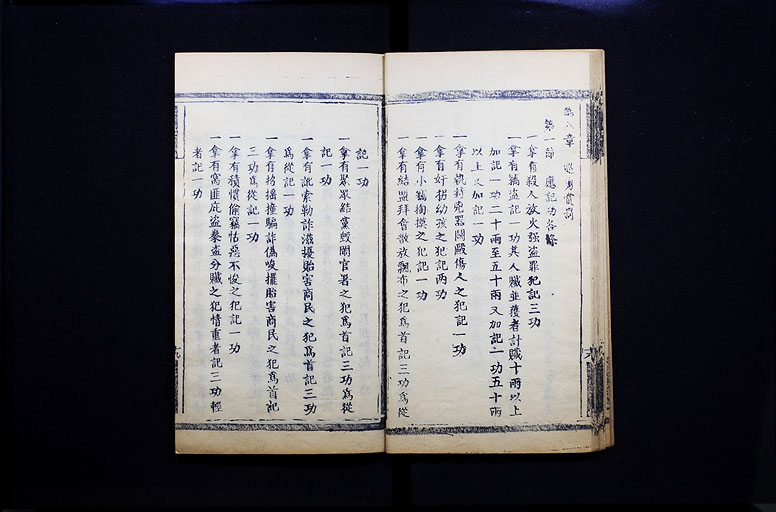 第八章 巡月賞罰
第一節 應記功各條
一拿有殺人放火强盗罪犯記三功
一拿有竊盗記一功其人贓並獲者計贓十兩以上
加記一功二十兩至五十兩又加記二功五十兩
以上又加記一功
一拿有執持兇器鬪毆傷人之犯記一功
一拿有奸拐幼孩之犯記兩功
一拿有小竊掏摸之犯記一功
一拿有結盟拜會散放飄布之犯爲首記三功爲從
記一功
一拿有聚眾結黨毀鬧官署之犯爲首記三功爲從
記一功
一拿有訛索勒詐滋擾貽害商民之犯爲首記三功
爲從記一功
一拿有招搖撞騙詐僞唆擺貽害商民之犯爲首記
三功爲從記一功
一拿有積慣偷竊怙惡不悛之犯記一功
一拿有窩匪庇盗豢盗分贓之犯情重者記三功輕
者記一功